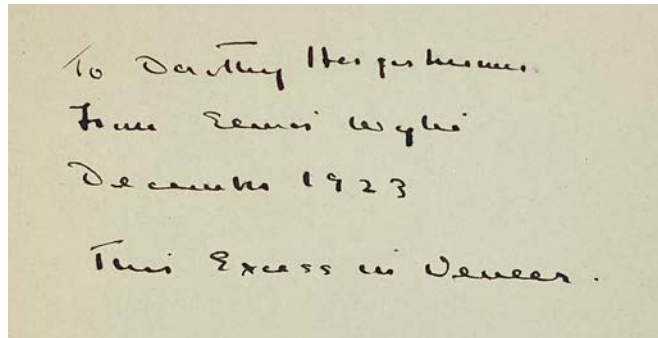 To Dorothy Hergesheimer
From Elinor Wylie
December 1923
This Excess in Veneer.